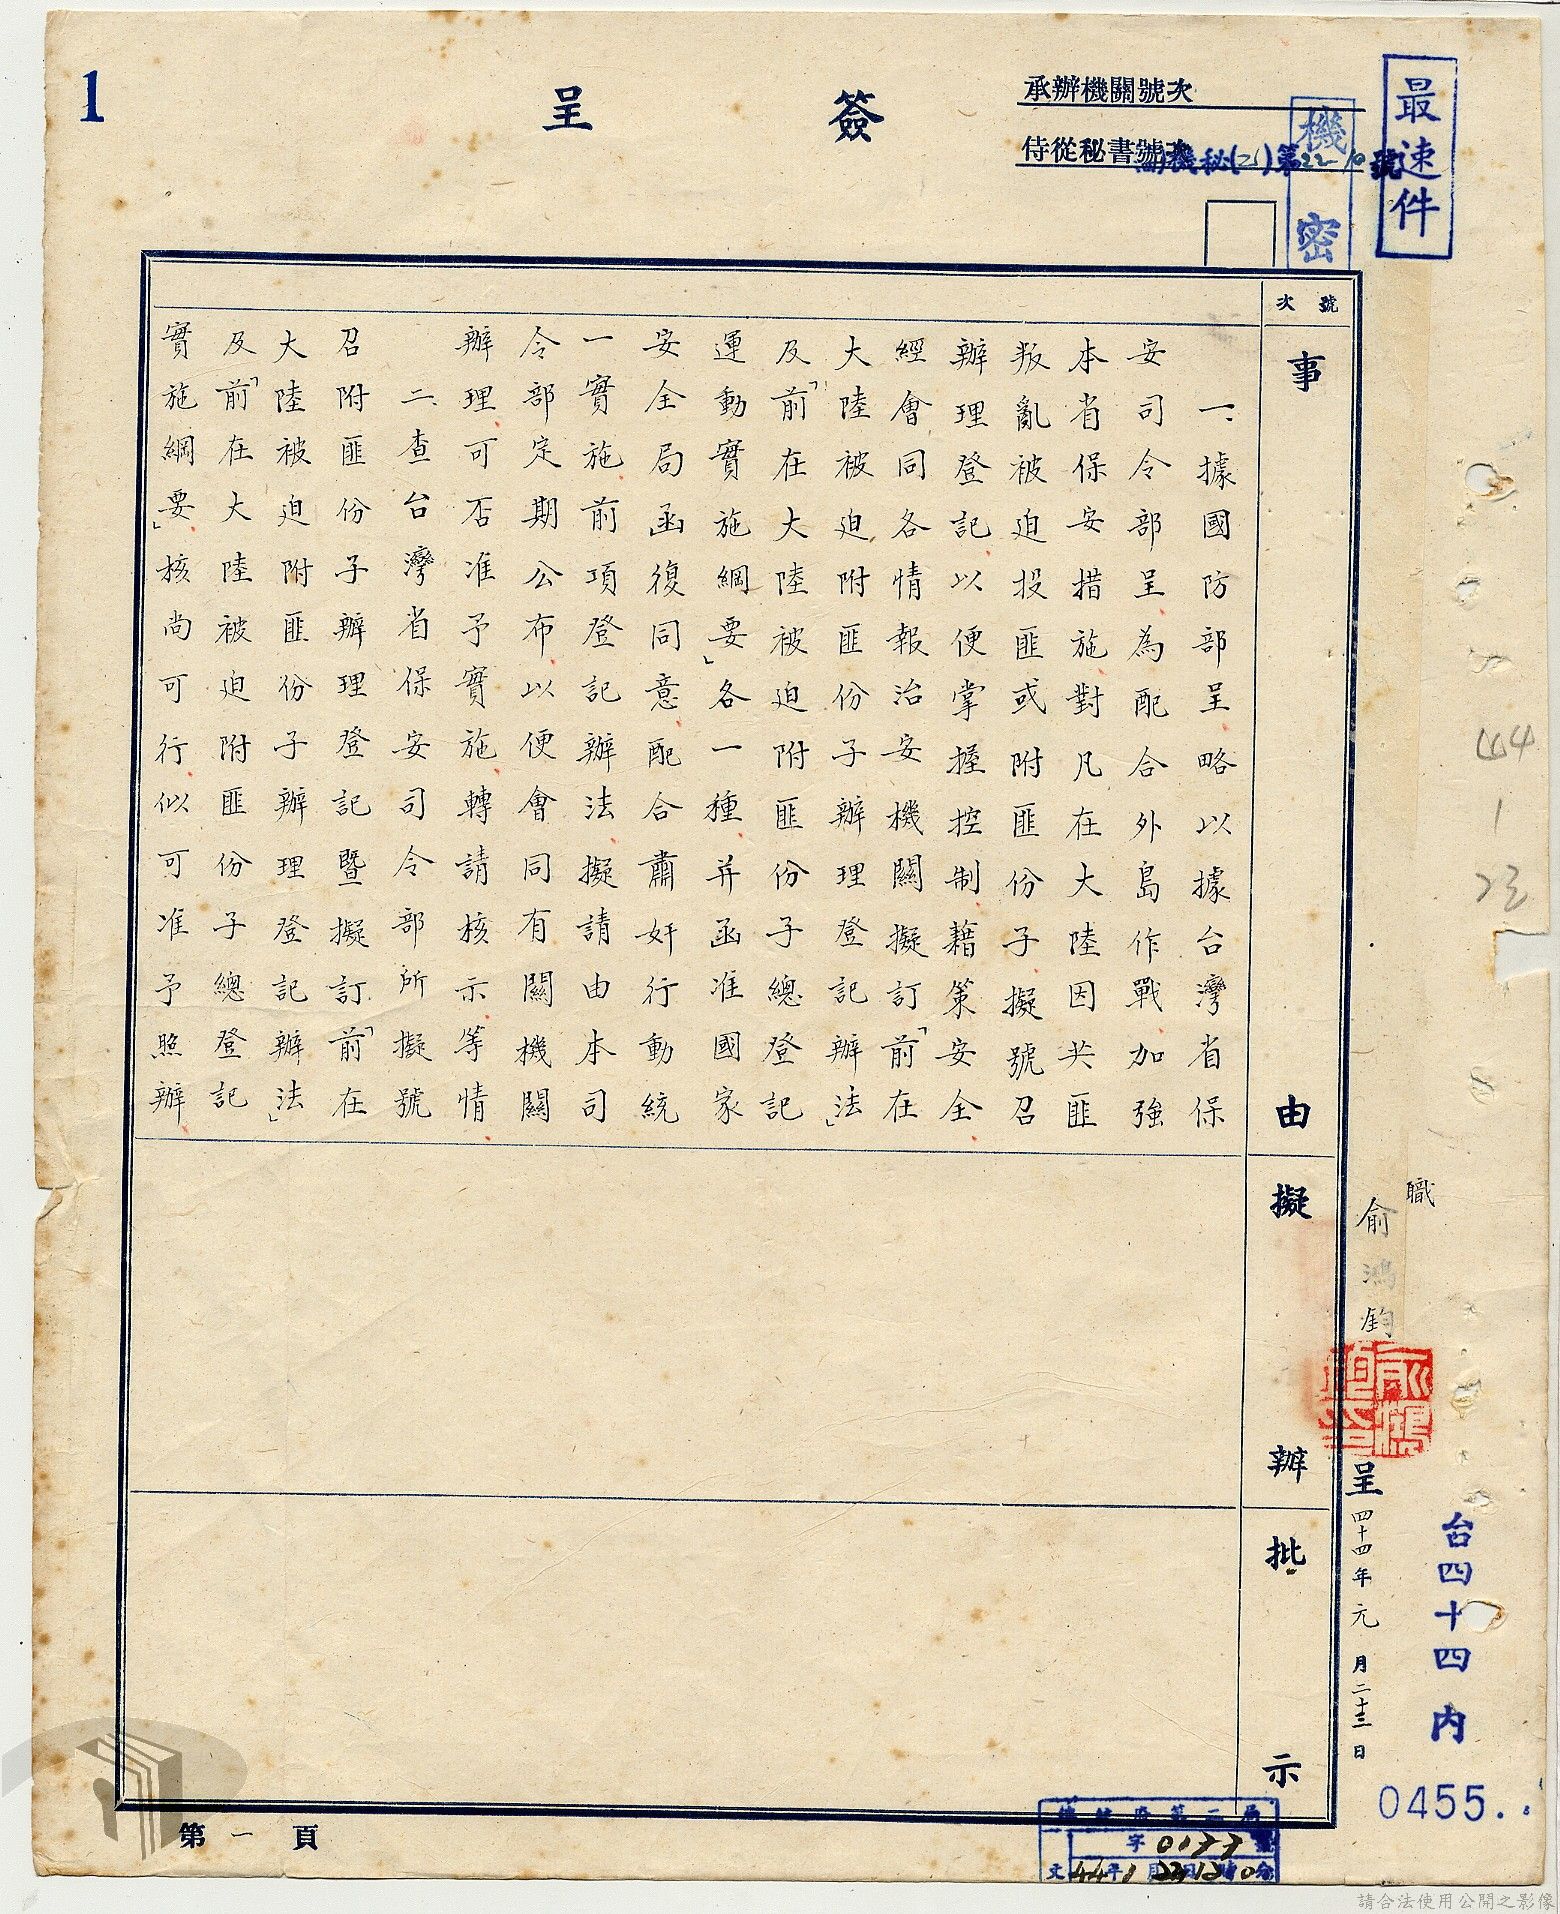 1
簽呈
承辦機關號次
侍從秘書號次
機秘(乙)第22-10號
機密
最速件
號次
事由
一、據國防部呈略以據台灣省保
安司令部呈為配合外島作戰加強
本省保安措施對凡在大陸因共匪
叛亂被迫投匪或附匪份子擬號召
辦理登記以便掌握控制藉策安全
經會同各情報治安機關擬訂「前在
大陸被迫附匪份子辦理登記辦法」
及「前在大陸被迫附匪份子總登記
運動實施綱要」各一種并函准國家
安全局函復同意配合肅奸行動統
一實施前項登記辦法擬請由本司
令部定期公布以便會同有關機關
辦理可否准予實施轉請核示等情
二、查台灣省保安司令部所擬號
召附匪份子辦理登記暨擬訂「前在
大陸被迫附匪份子辦理登記辦法」
及「前在大陸被迫附匪份子總登記
實施綱要」核尚可行似可准予照辦
擬辦
批示
職
俞鴻鈞
呈
四十四年元月二十三日
44
1
台四十四內
0455.
第一頁
總統府第二局
字0177號
文44年1月
請合法使用公開之影像